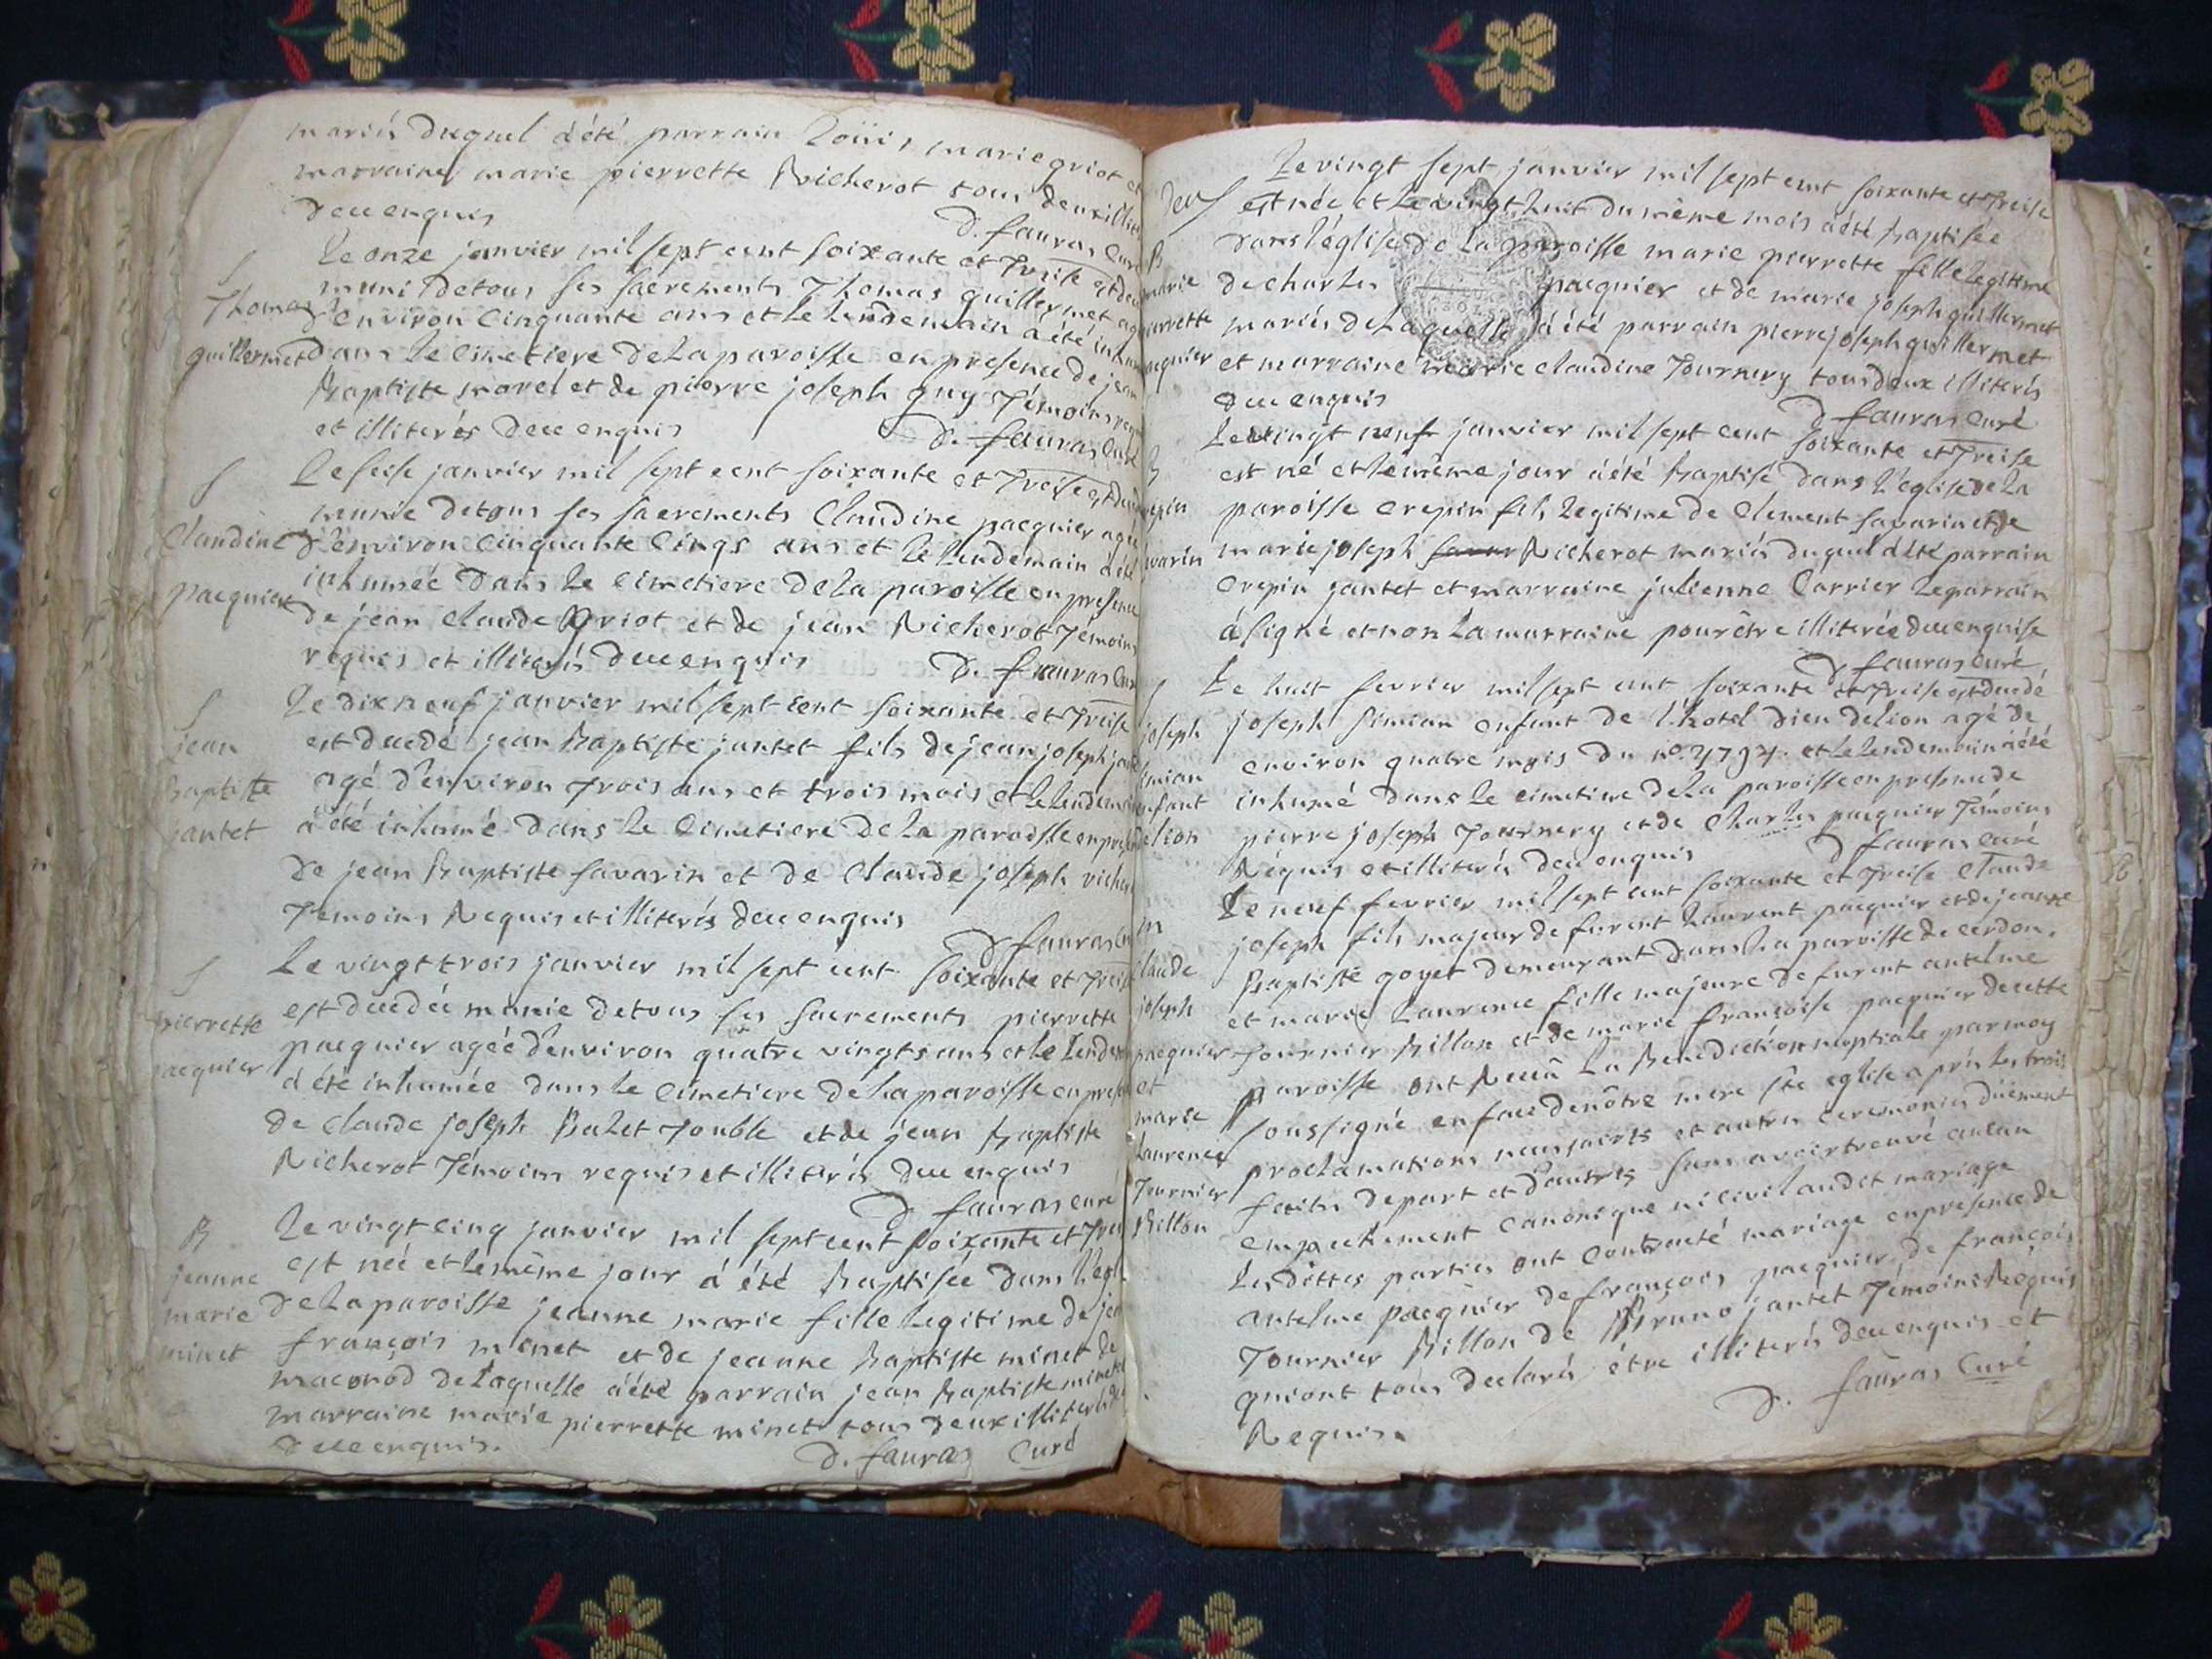 mariés duquel a été parrain Loüis marie griot et
marraine marie pierrette Richerot tous deux illiterés
de ce enquis
D. fauras Curé
S
Thomas
guillermet
Le onze janvier mil sept cent soixante et treise est decedé
muni de tous ses sacrements Thomas guillermet agé
d'environ Cinquante ans et le lendemain a été inhumé
dans le Cimetiere de la paroisse en presence de jean
Baptiste morel et de pierre joseph guy Témoins requis
et illiterés de ce enquis
D. fauras Curé
S
Claudine
pacquier
Le seise janvier mil sept cent soixante et Treise est decedée
munie de tous ses sacrements Claudine pacquier agée
d'environ Cinquante Cinqs ans et le lendemain a été
inhumée dans le Cimetiere de la paroisse en presence
de jean Claude griot et de jean Richerot Témoins
requis et illiterés de ce enquis
D. fauras Curé
S
jean
Baptiste
jantet
Le dix neuf janvier mil sept cent soixante et Treise
est decedé jean Baptiste jantet fils de jean joseph jantet
agé d'environ trois ans et trois mois et le lendemain
a été inhumé dans le Cimetiere de la paroisse en presence
de jean Baptiste savarin et de Claude joseph
Témoins Requis et illiterés de ce enquis
D fauras Curé
S
pierrette
pacquier
Le vingt trois janvier mil sept cent soixante et Treise
est decedée munie de tous ses sacrements pierrette
pacquier agée d'environ quatre vingts ans et le lendemain
a été inhumée dans le Cimetiere de la paroisse en presence
de Claude joseph Balet et de jean Baptiste
Richerot Témoins requis et illiterés de ce enquis
D fauras curé
B
jeanne
marie
minet
Le vingt cinq janvier mil sept cent soixante et Treise
est née et le même jour a été Baptisée dans l'eglise
de la paroisse jeanne marie fille legitime de jean
françois minet et de jeanne Baptiste minet de
maconod de laquelle a été parrain jean Baptiste minet et
marraine marie pierrette minet tous deux illiterés
de ce enquis.
D. fauras Curé
B
marie
pierrette
pacquier
Le vingt sept janvier mil sept cent soixante et treise
est née et le vingt huit du même mois a été Baptisée
dans l'églisse de la paroisse marie pierrette fille legitime
de charles pacquier et de marie joseph guillermet
mariés de laquelle a été parrain pierre joseph guillermet
et marraine marie claudine Tournery tous deux illiterés
de ce enquis
D fauras Curé
B
crepin
savarin
Le vingt neuf janvier mil sept cent soixante et Treise
est né et le même jour a été Baptisé dans l'eglise de la
paroisse crepin fils legitime de Clement savarin et de
marie joseph Richerot mariés duquel a été parrain
Crepin jantet et marraine julienne Carrier le parrain
a signé et non la marraine pour être illiterée de ce enquise
D fauras Curé
S
joseph
simian
enfant
de lion
Le huit fevrier mil sept cent soixante et Treise est decedé
joseph simian enfant de l'hotel dieu de lion agé de
environ quatre mois du nº et le lendemain a été
inhumé dans le cimetiere de la paroisse en presence de
pierre joseph Tournery et de Charles pacquier Témoins
Requis et illiterés de ce enquis
D fauras curé
m
Claude
joseph
pacquier
et
marie
Laurence
Tournier
Billon
Le neuf fevrier mil sept cent soixante et Treise Claude
joseph fils majeur de furent Laurent pacquier et de jeanne
Baptiste goyet demeurant dans la paroisse de cerdon.
et marie Laurence fille majeure de furent antelme
Tournier Billon et de marie françoise pacquier de cette
paroisse ont Receu la Benediction nuptiale par moy
soussigné en face de nôtre mere ste eglise apres les trois
proclamations necessaires et autres ceremonies düement
faites de part et d'autres sans avoir treuvé aucun
empechement Canonique ni civil audit mariage
Lesdittes parties ont contracté mariage en presence de
antelme pacquier de françois pacquier, de françois
Tournier Billon de Bruno jantet Témoins Requis
qui ont tous declaré être illiterés de ce enquis et
Requis.
D. fauras Curé